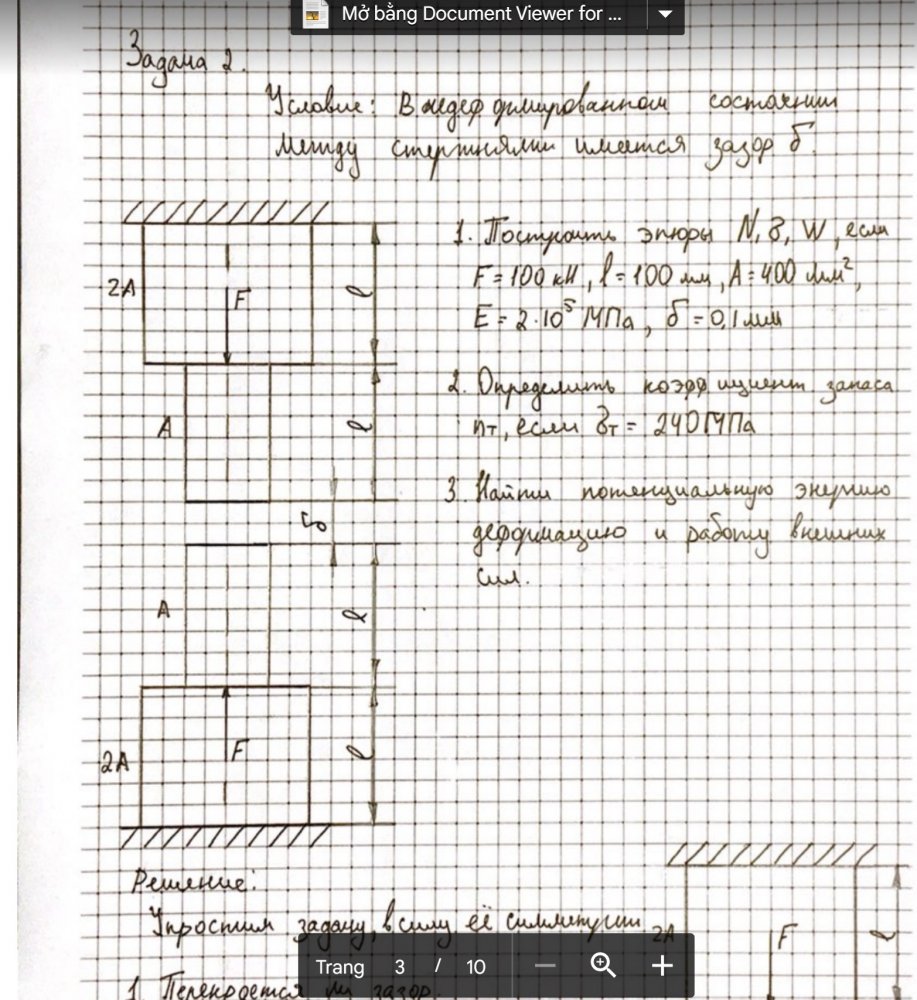 Mở bằng Document Viewer for ...
Задача 2.
Условие: В недеформированном состоянии
между стержнями имеется зазор δ.
1. Построить эпюры N, σ, W, если
F = 100 кН, l = 100 мм, A = 400 мм²,
E = 2·10⁵ МПа, δ = 0,1 мм
2. Определить коэффициент запаса
nт, если σт = 240 МПа
3. Найти потенциальную энергию
деформацию и работу внешних
сил.
2A
F
l
A
l
δ
A
l
2A
F
l
Решение:
Упростим задачу, в силу её симметрии
2A
F
l
1. Перекроется ли зазор.
Trang 3 / 10